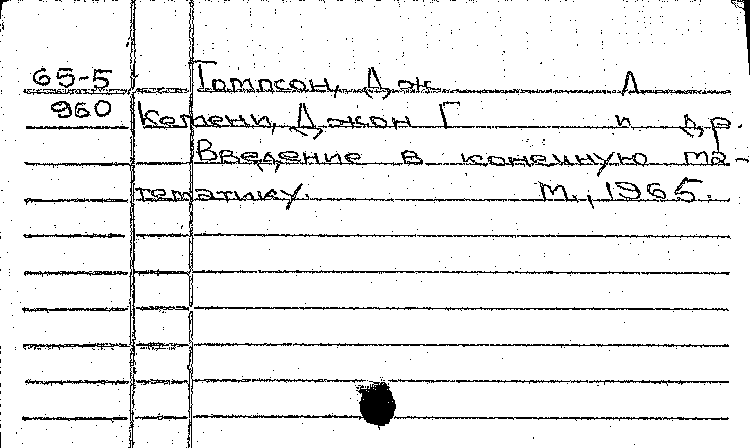 65-5 Томпсон, Дж Л
960 Кемени, Джон Г и др.
Введение в конечную ма-
тематику. М., 1965.